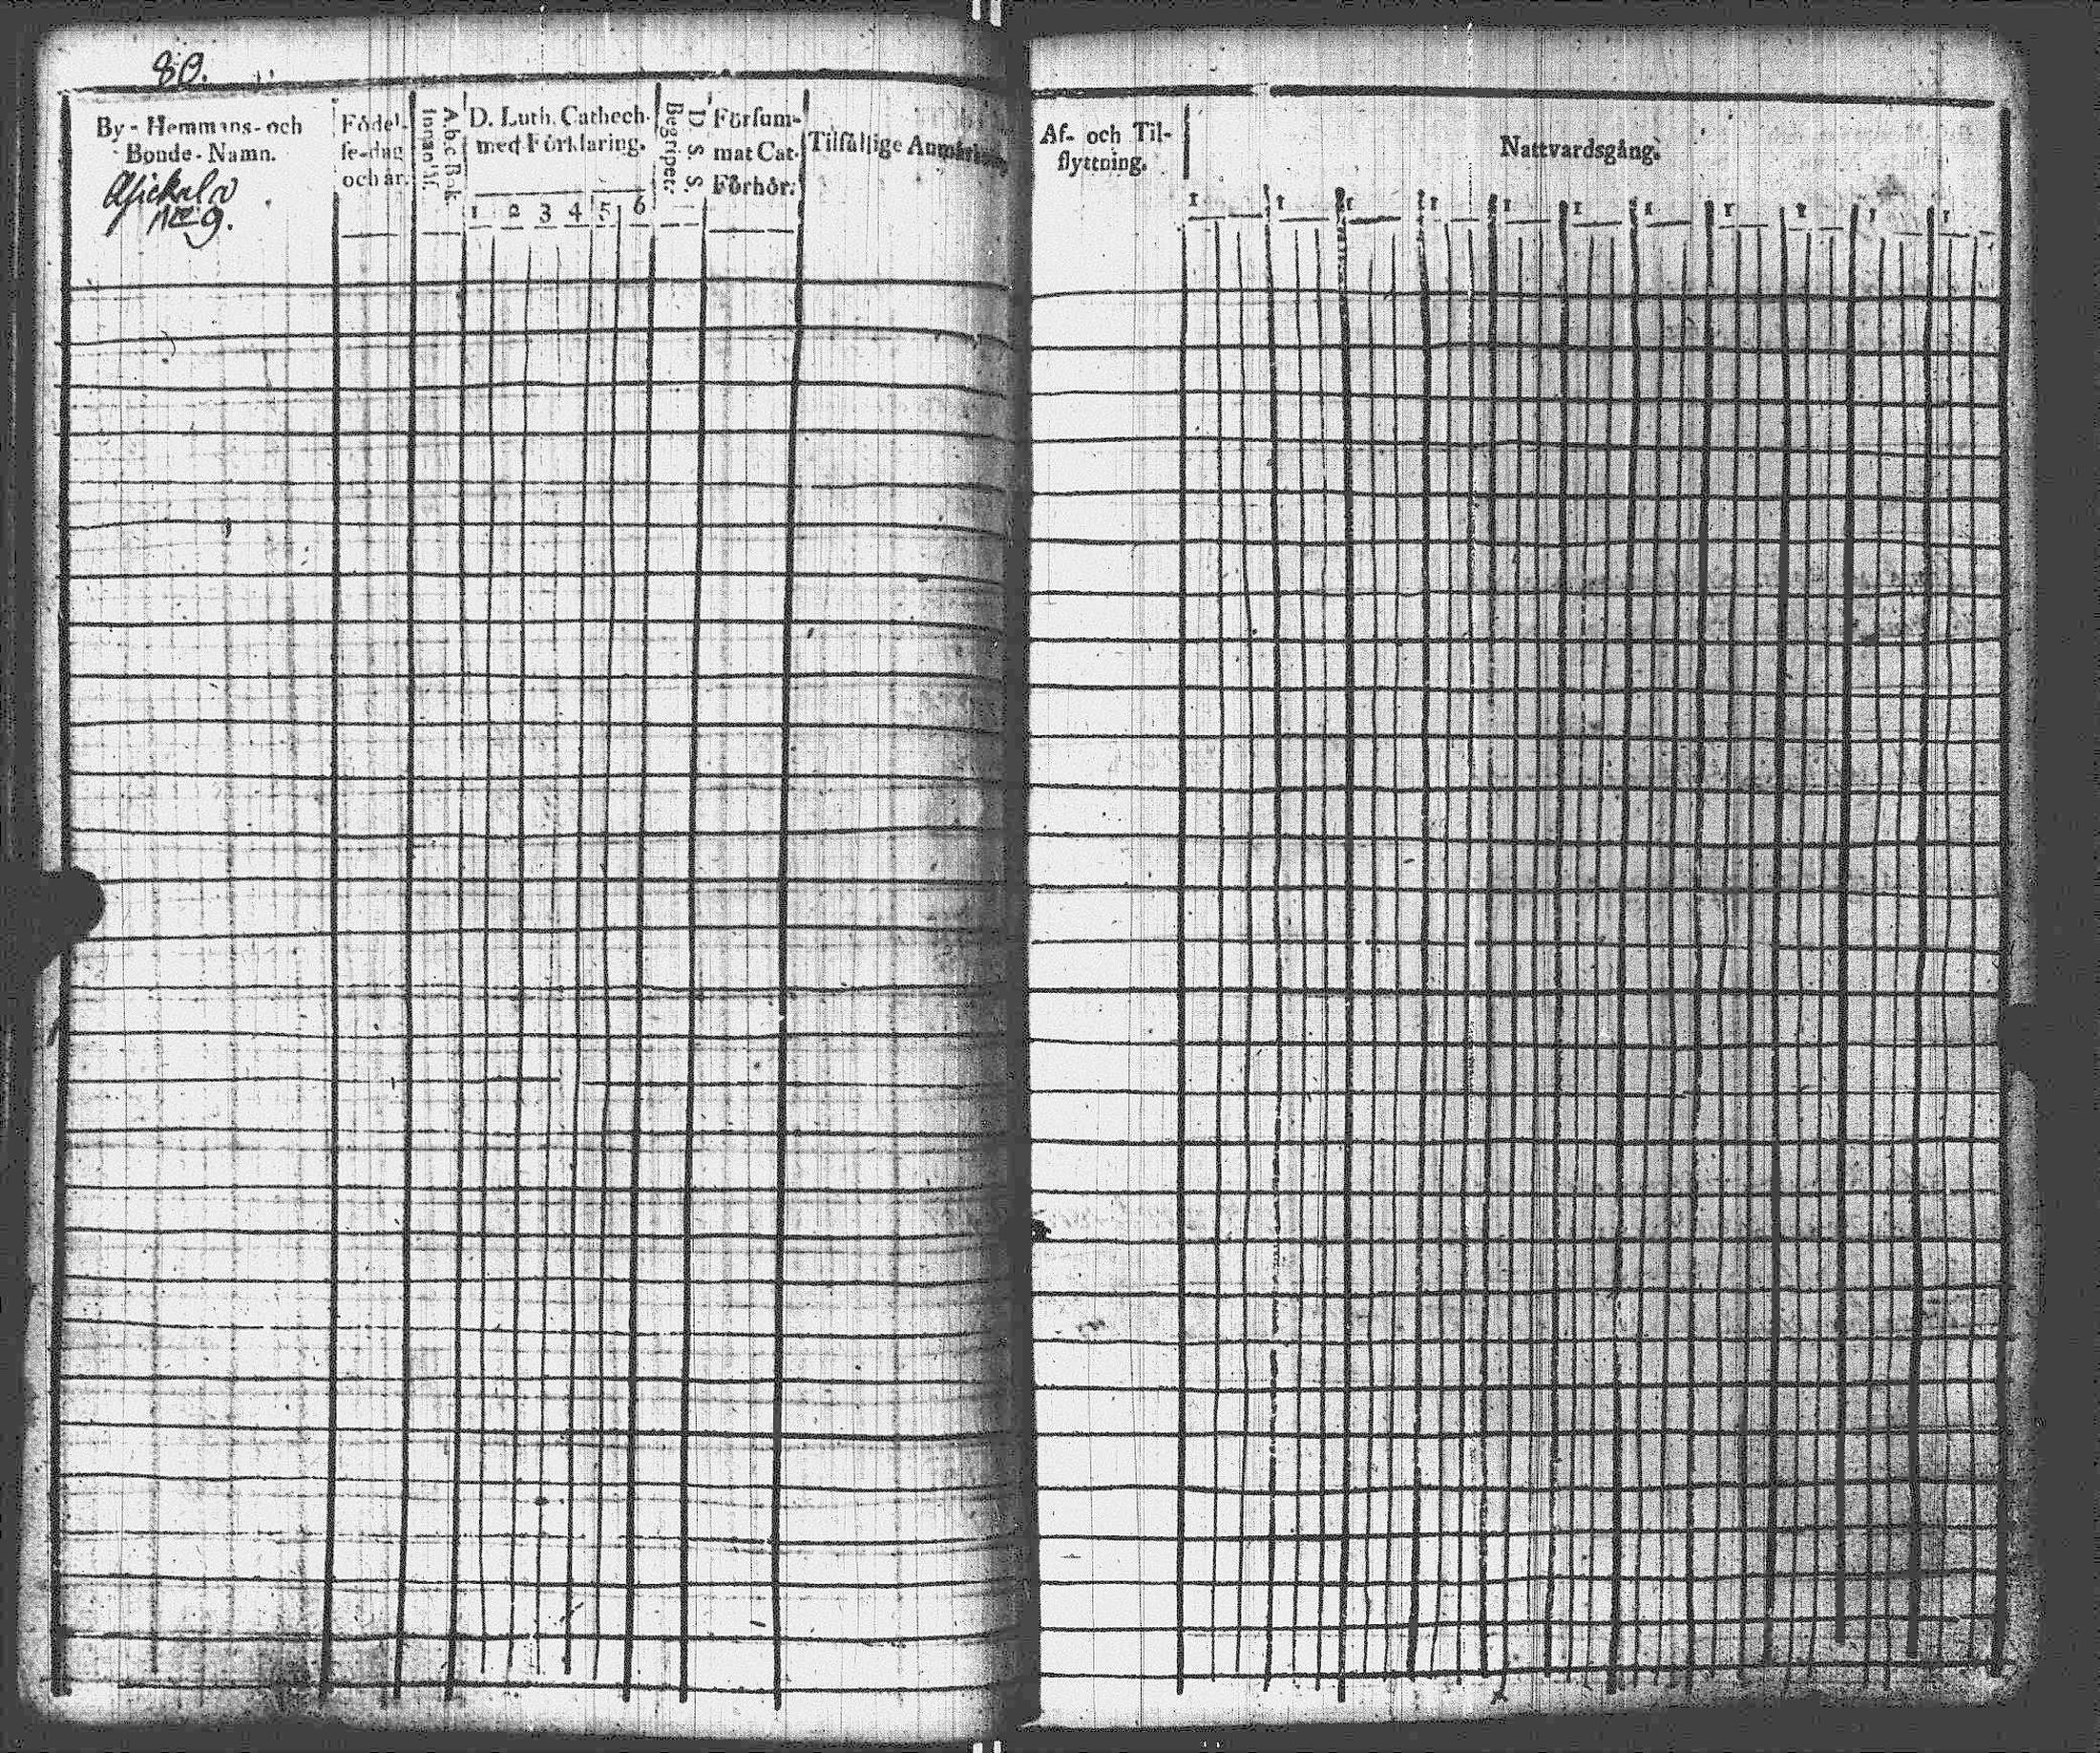 80.
By- Hemmans- och
Bonde-Namn.
Födel-
se-dag
och år.
A.b.c. Bok
Innanläs.
D. Luth. Cathech.
med Förklaring.
1 2 3 4 5 6
Begripet.
D. S. S.
Försum-
mat Cat.
Förhör.
Tilfällige Anmärkning
No 9.
Af- och Til-
flyttning.
Nattvardsgång.
1 1 1 1 1 1 1 1 1 1 1